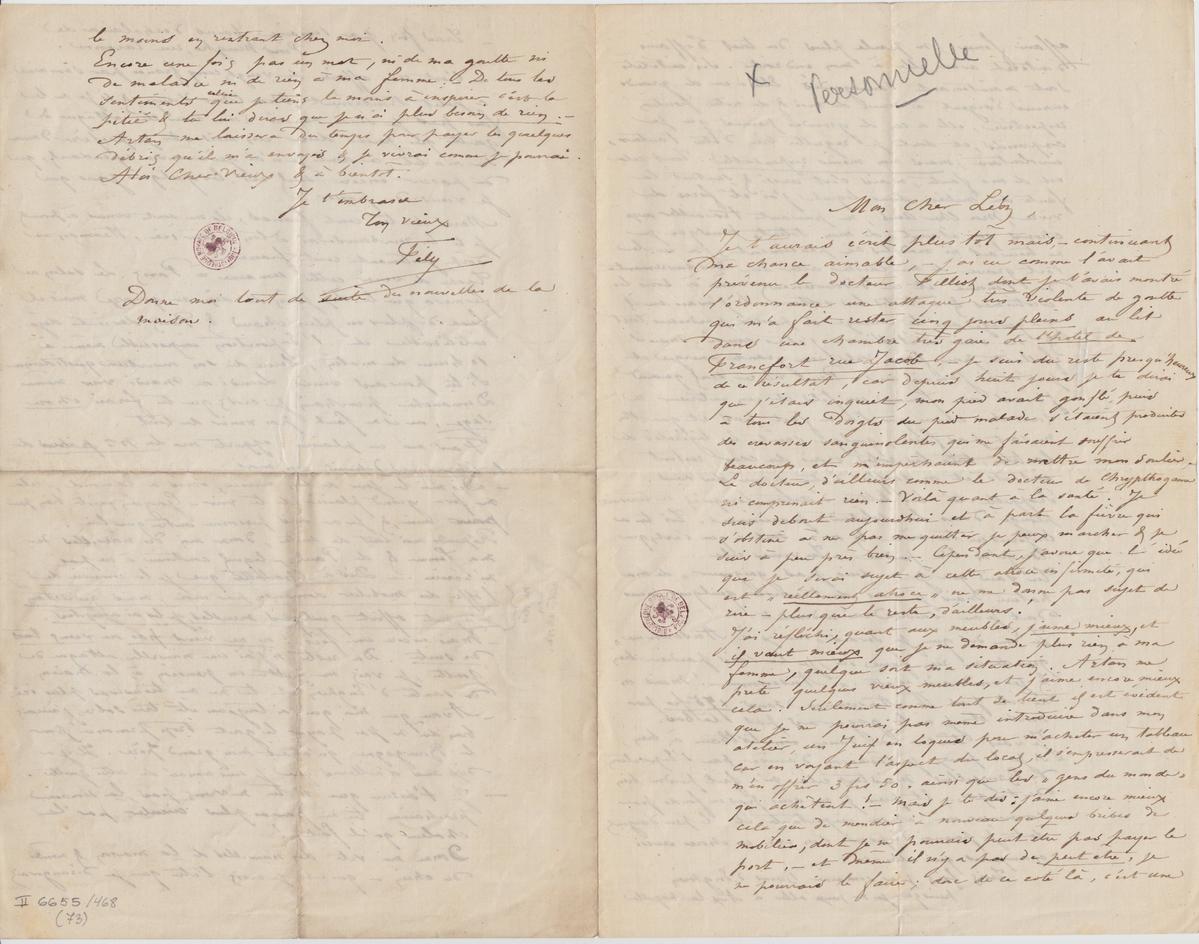 le moins en rentrant chez moi.
Encore une fois pas un mot, ni de ma goutte ni
de maladie ni de rien à ma femme. De tous les
sentiments celui que je tiens le moins à inspirer c'est la
pitié & tu lui diras que je n'ai plus besoin de rien. –
Artan me laissera du temps pour payer les quelques
débris qu'il m'a envoyés & je vivrai comme je pourrai.
Cher Vieux & à bientôt.
Je t'embrasse
Ton vieux
Fély
Donne moi tout de suite des nouvelles de la
maison.
II 6655/468
(73)
X Personnelle
Mon Cher Léon
Je t'aurais écrit plus tôt mais – continuant
ma chance aimable, j'ai eu comme l'avait
prévenu le docteur Filliot dont je t'avais montré
l'ordonnance une attaque très violente de goutte
qui m'a fait rester cinq jours pleins au lit
dans une chambre très gaie de l'hotel de
Francfort rue Jacob, – je suis du reste presqu'heureux
de ce résultat, car depuis huit jours je te dirai
que j'étais inquiet, mon pied avait gonflé, puis
à tous les doigts du pied malade s'étaient produites
des crevasses sanguinolentes qui me faisaient souffrir
beaucoup, et m'empechaient de mettre mon soulier –
Le docteur, d'ailleurs comme le docteur de Chrypthogame
ni comprenait rien. – Voilà quant à la santé. Je
suis debout aujourdhui et à part la fièvre qui
s'obstine à ne pas me quitter je peux marcher & je
suis à peu près bien. – Cependant, j'avoue que l'idée
que je serai sujet à cette atroce infirmité, qui
est « réellement atroce » ne me donne pas sujet de
rire – plus que le reste, d'ailleurs!
J'ai réfléchi, quant aux meubles, j'aime mieux, et
il vaut mieux que je ne demande plus rien à ma
femme, quelque soit ma situation. Artan me
prête quelques vieux meubles, et j'aime encore mieux
cela. Seulement comme tout se tient il est évident
que je ne pourrai pas même introduire dans mon
atelier, un Juif en loques pour m'acheter un tableau
car en voyant l'aspect du local, il s'empresserait de
m'en offrir 3 frs 50. ainsi que les « gens du monde »
qui achètent! – mais je te dis: j'aime encore mieux
cela que de mendier à nouveau quelques bribes de
mobilier, dont je ne pourrais peut etre pas payer le
port, – et même il n'y a pas de peut etre, je
ne pourrais le faire; donc de ce coté là, c'est une